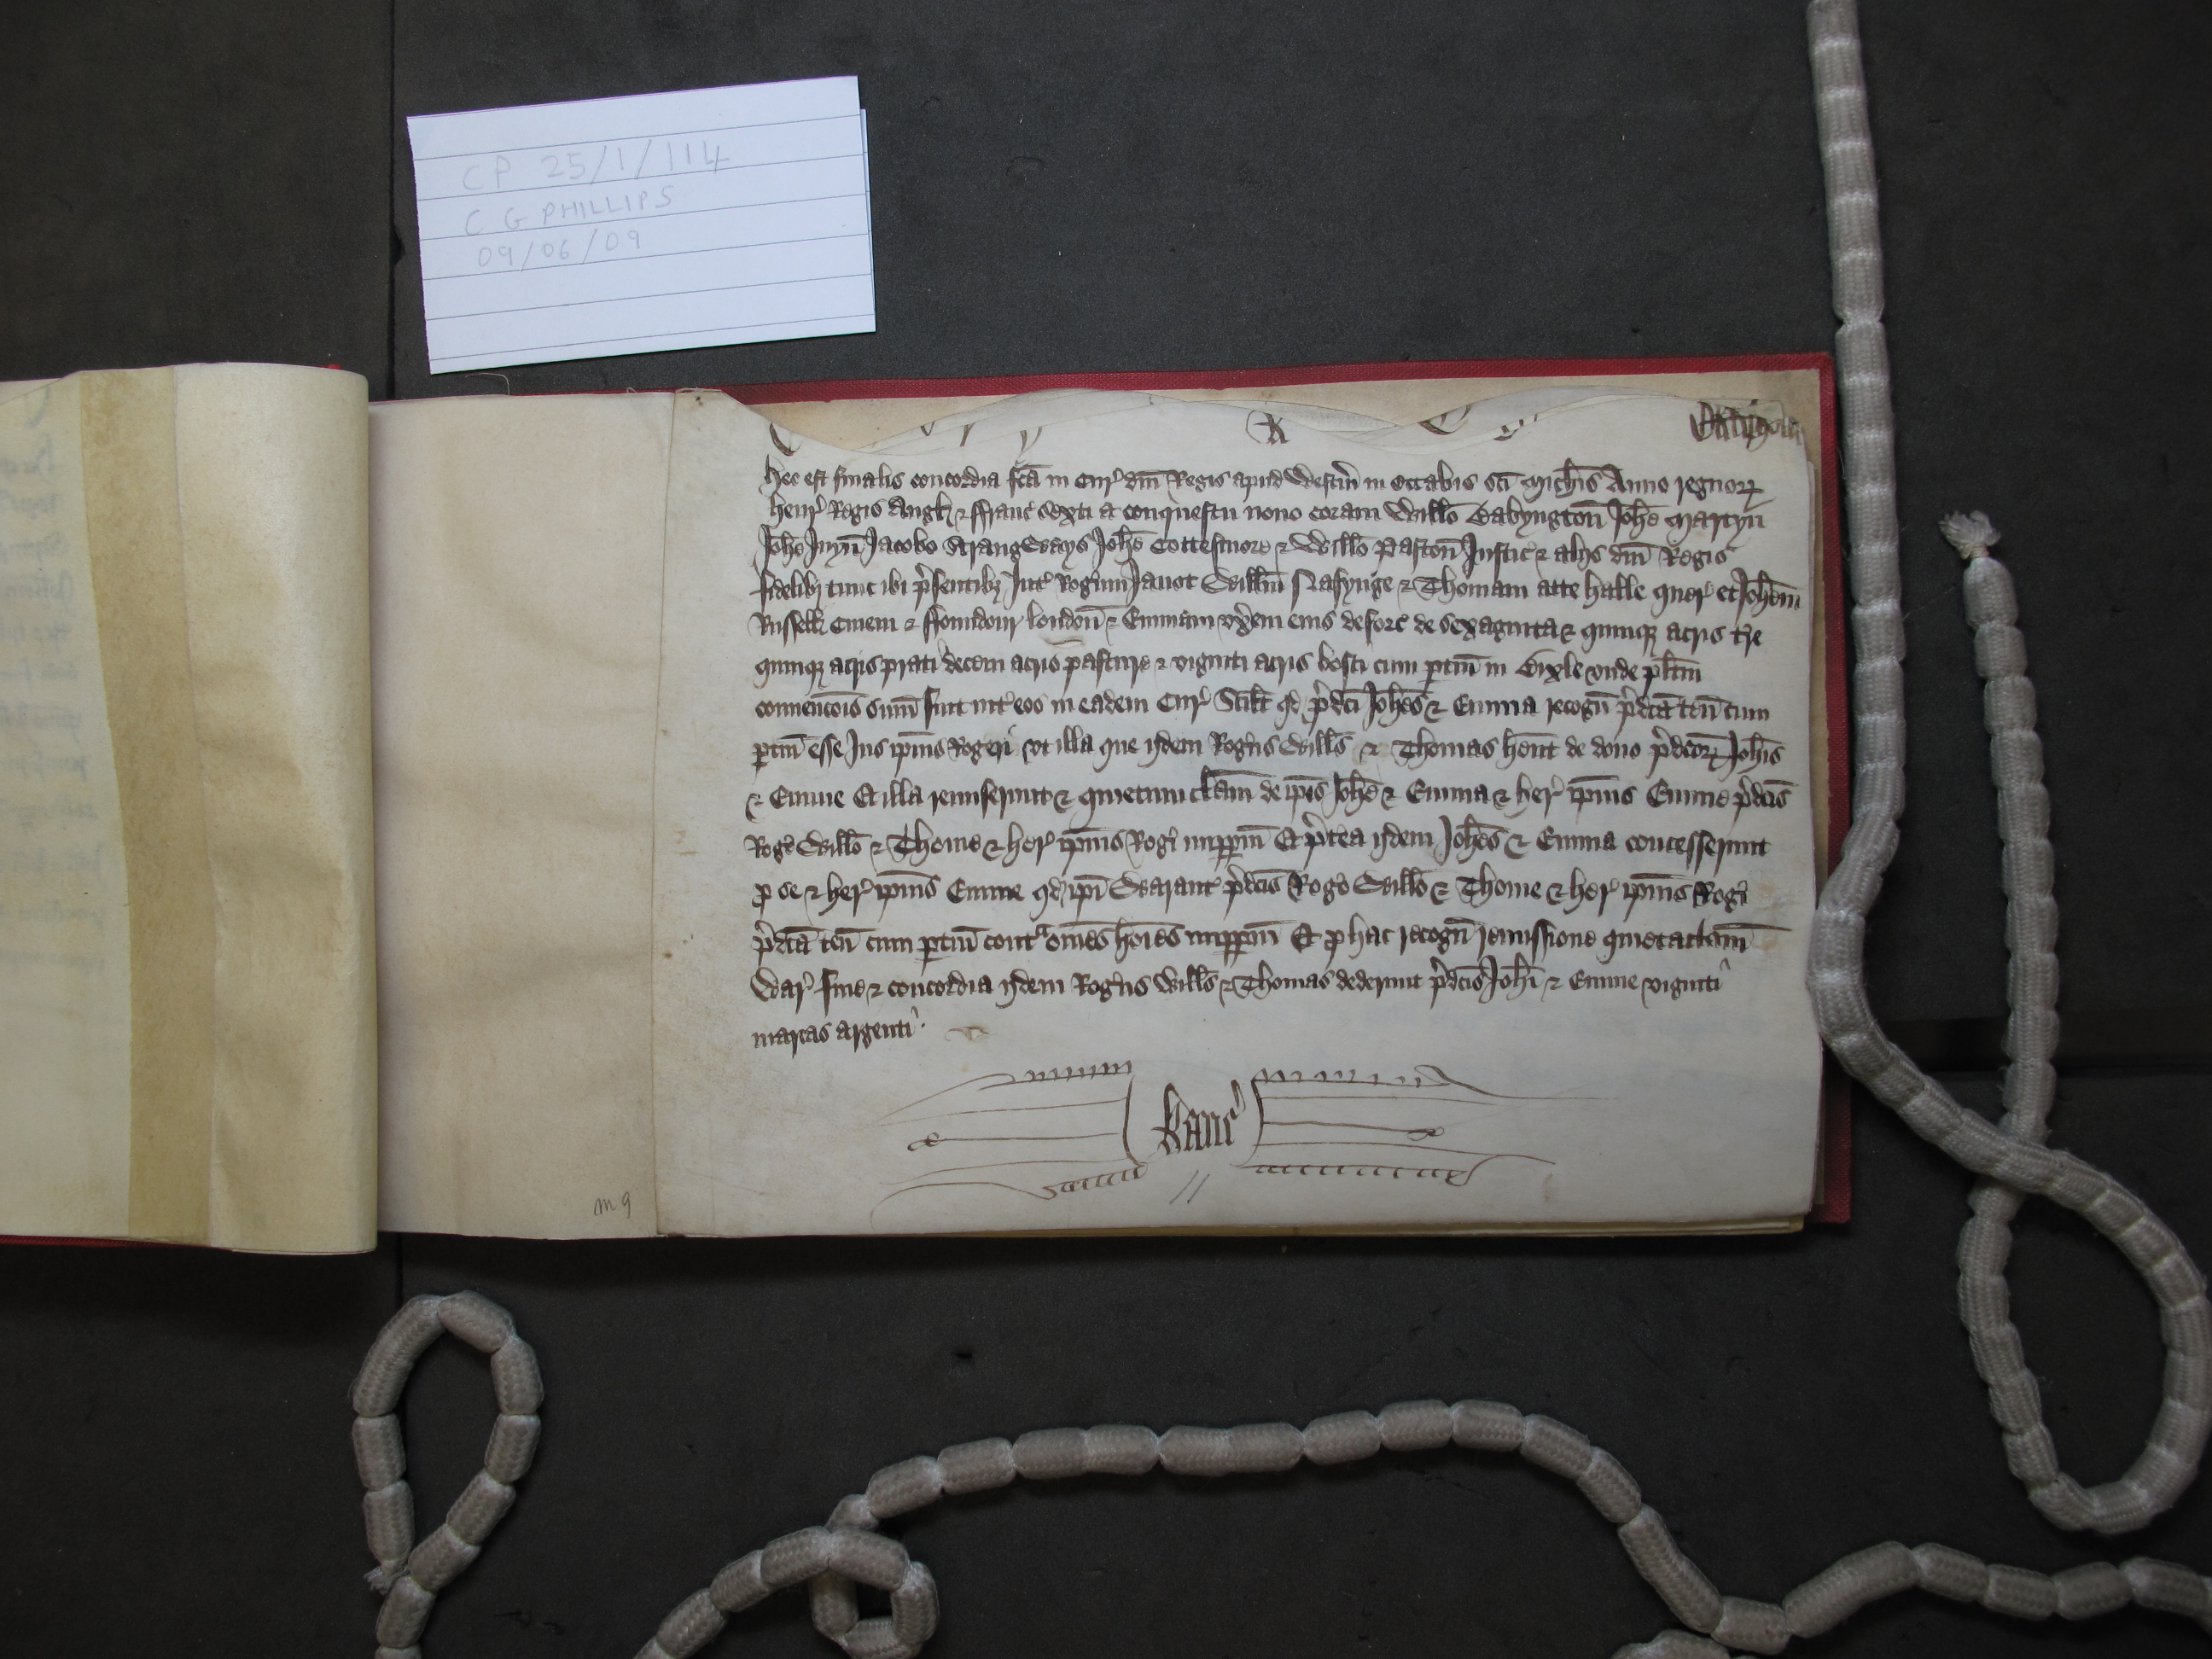 CP 25/1/114
C G PHILLIPS
09/06/09
Hec est finalis concordia fca in Cur dni Regis apud Westm in Octabis sci Michis Anno regnor
Henr Regis Angl & Franc Sexti a conquestu nono coram Willo Babyngton Johe Martyn
Johe Juyn Jacobo Strangways Johe Cottesmore & Willo Paston Justic & alijs dni Regis
fidelibz tunc ibi psentibz Int Rogum Janot Willm Nasynge & Thomam atte Halle quer et Johem
Russell Civem & London & Emmam uxem eius deforc de sexaginta & quinqz acris tre
quinqz acris prati decem acris pasture & viginti acris bosci cum ptin in Bixle unde plitm
convencois sum fuit int eos in eadem Cur Scilt qd pdci Johes & Emma recogn pdca ten cum
ptin esse Jus ipius Rogeri ut illa que ijdem Rogus Wills & Thomas hent de dono pdcor Johis
& Emme Et illa remiserunt & quietumclam de ipis Johe & Emma & her ipius Emme pdcis
Rogo Willo & Thome & her ipius Rogi imppm Et pterea ijdem Johes & Emma concesserunt
p se & her ipius Emme qd ipi Warant pdcis Rogo Willo & Thome & her ipius Rogi
pdca ten cum ptin contra omes hoies imppm Et p hac recogn remissione quietaclam
War fine & concordia ijdem Rogus Wills & Thomas dederunt pdcis Johi & Emme viginti
marcas argenti
Kanc
m 9